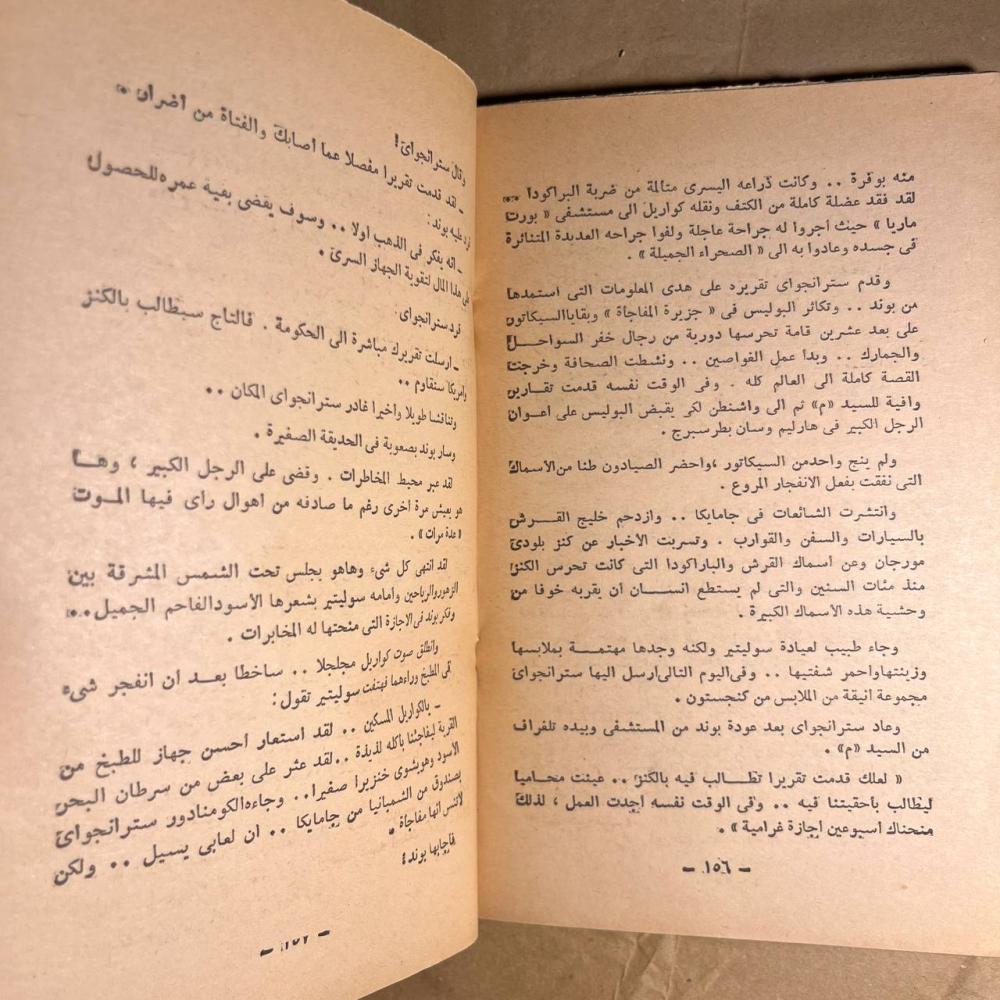 منه بوفرة .. وكانت ذراعه اليسرى متألمة من ضربة البراكودا ..
لقد فقد عضلة كاملة من الكتف ونقله كواريل الى مستشفى « بورت
ماريا » حيث أجروا له جراحة عاجلة ولفوا جراحه العديدة المتناثرة
فى جسده وعادوا به الى « الصحراء الجميلة » .
وقدم سترانجواى تقريره على هدى المعلومات التى استمدها
من بوند .. وتكاثر البوليس فى « جزيرة المفاجاة » وبقاياالسيكاتور
على بعد عشرين قامة تحرسها دورية من رجال خفر السواحل
والجمارك .. وبدأ عمل الغواصين .. ونشطت الصحافة وخرجت
القصة كاملة الى العالم كله . وفى الوقت نفسه قدمت تقارير
وافية للسيد «م» ثم الى واشنطن لكى يقبض البوليس على اعوان
الرجل الكبير فى هارليم وسان بطرسبرج .
ولم ينج واحدمن السيكاتور ،واحضر الصيادون طنا من الأسماك
التى نفقت بفعل الانفجار المروع .
وانتشرت الشائعات فى جامايكا .. وازدحم خليج القرش
بالسيارات والسفن والقوارب . وتسربت الأخبار عن كنز بلودى
مورجان وعن أسماك القرش والباراكودا التى كانت تحرس الكنز
منذ مئات السنين والتى لم يستطع انسان أن يقربه خوفا من
وحشية هذه الأسماك الكبيرة .
وجاء طبيب لعيادة سوليتير ولكنه وجدها مهتمة بملابسها
وزينتهاواحمر شفتيها .. وفىاليوم التالىارسل اليها سترانجواى
مجموعة انيقة من الملابس من كنجستون .
وعاد سترانجواى بعد عودة بوند من المستشفى وبيده تلغراف
من السيد «م» .
« لعلك قدمت تقريرا تطالب فيه بالكنز .. عينت محاميا
ليطالب بأحقيتنا فيه .. وفى الوقت نفسه أجدت العمل ، لذلك
منحناك أسبوعين اجازة غرامية » .
– ١٥٦ –
وقال سترانجواى!
– لقد قدمت تقريرا مفصلا عما اصابك والفتاة من أضرار .
فرد عليه بوند:
– انه يفكر فى الذهب اولا .. وسوف يقضى بقية عمره للحصول
على هذا المال لتقوية الجهاز السرى .
فرد سترانجواى.
– ارسلت تقريرك مباشرة الى الحكومة . فالتاج سيطالب بالكنز
وامريكا ستقاوم ..
وتناقشا طويلا وأخيرا غادر سترانجواى المكان ..
وسار بوند بصعوبة فى الحديقة الصغيرة .
لقد عبر محيط المخاطرات . وقضى على الرجل الكبير ، وها
هو يعيش مرة أخرى رغم ما صادفه من اهوال رأى فيها الموت
«عدة مرات» .
لقد انتهى كل شىء وهاهو يجلس تحت الشمس المشرقة بين
الزهوروالرياحين وأمامه سوليتير بشعرها الأسودالفاحم الجميل ..
وفكر بوند فى الاجازة التى منحتها له المخابرات .
وانطلق صوت كواريل مجلجلا .. ساخطا بعد أن انفجر شىء
فى المطبخ وراءهما فهتفت سوليتير تقول :
– يالكواريل المسكين .. لقد استعار أحسن جهاز للطبخ من
القرية ليفاجئنا بأكله لذيذة ..لقد عثر على بعض من سرطان البحر
الأسود وهويشوى خنزيرا صغيرا.. وجاءهالكومنادور سترانجواى
بصندوق من الشمبانيا من جامايكا .. ان لعابى يسيل .. ولكن
لاتنس أنها مفاجأة .
فأجابها بوند: